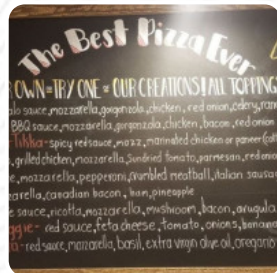 The Best Pizza Ever
OWN=TRY ONE = OUR CREATIONS! ALL TOPPING
sauce, mozzarella, gorgonzola, chicken, red onion, celery, ran
BBQ sauce, mozzarella, gorgonzola, chicken, bacon, red onion
Tikka- spicy red sauce, mozz, marinated chicken or paneer
, grilled chicken, mozzarella, sundried tomato, parmesan, red onion
e, mozzarella, pepperoni, crumbled meatball, italian sausa
zarella, canadian bacon, ham, pineapple
e sauce, ricotta, mozzarella, mushroom, bacon, arugula
ggie- red sauce, feta cheese, tomato, onions, banana
- red sauce, mozzarella, basil, extra virgin olive oil, oregano